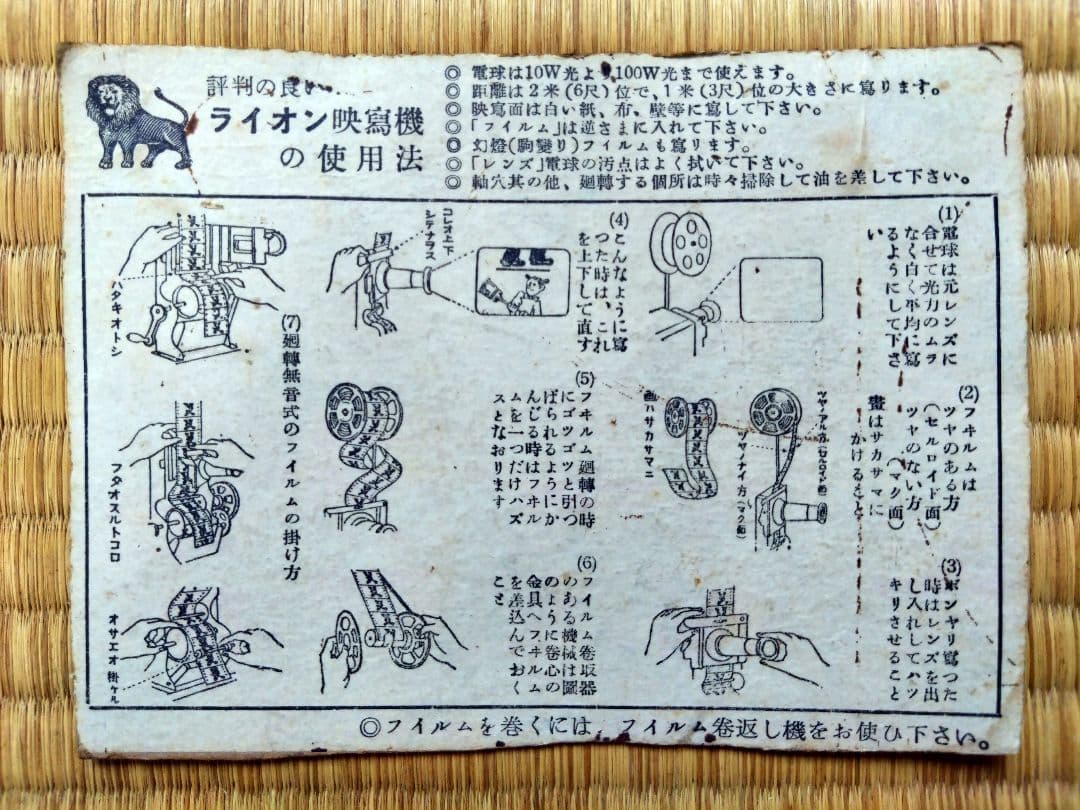 評判の良い
ライオン映寫機
の使用法
◎ 電球は10W光より100W光まで使えます。
◎ 距離は2米(6尺)位で、1米(3尺)位の大きさに寫ります。
◎ 映寫面は白い紙、布、壁等に寫して下さい。
◎ 「フイルム」は逆さまに入れて下さい。
◎ 幻燈(駒變り)フイルムも寫ります。
◎ 「レンズ」電球の汚点はよく拭いて下さい。
◎ 軸穴其の他、廻轉する個所は時々掃除して油を差して下さい。
(1)
電球は元レンズに
合せて光力のムラ
なく白く平均に寫
るようにして下さ
い
(2)
フヰルムは
ツヤのある方
(セルロイド面)
ツヤのない方
(マク面)
畫はサカサマに
かけること
ツヤノアル方(セルロイド面)
ツヤノナイ方(マク面)
画ハサカサマニ
(3)
ボンヤリ寫つた
時はレンズを出
し入れしてハツ
キリさせること
(4)
こんなように寫
つた時は、これ
を上下して直す
コレオ上下
シテナヲス
(5)
フヰルム廻轉の時
にゴツゴツと引つ
ぱられるようにか
んじる時はフヰル
ムを一つだけハズ
スとなおります
(6)
フイルム卷取器
のある機械は圖
のように卷心の
金具へフヰルム
を差込んでおく
こと
(7)廻轉無音式のフイルムの掛け方
ハタキオトシ
フタオスルトコロ
オサエオ掛ケル
◎フイルムを巻くには、フイルム卷返し機をお使ひ下さい。